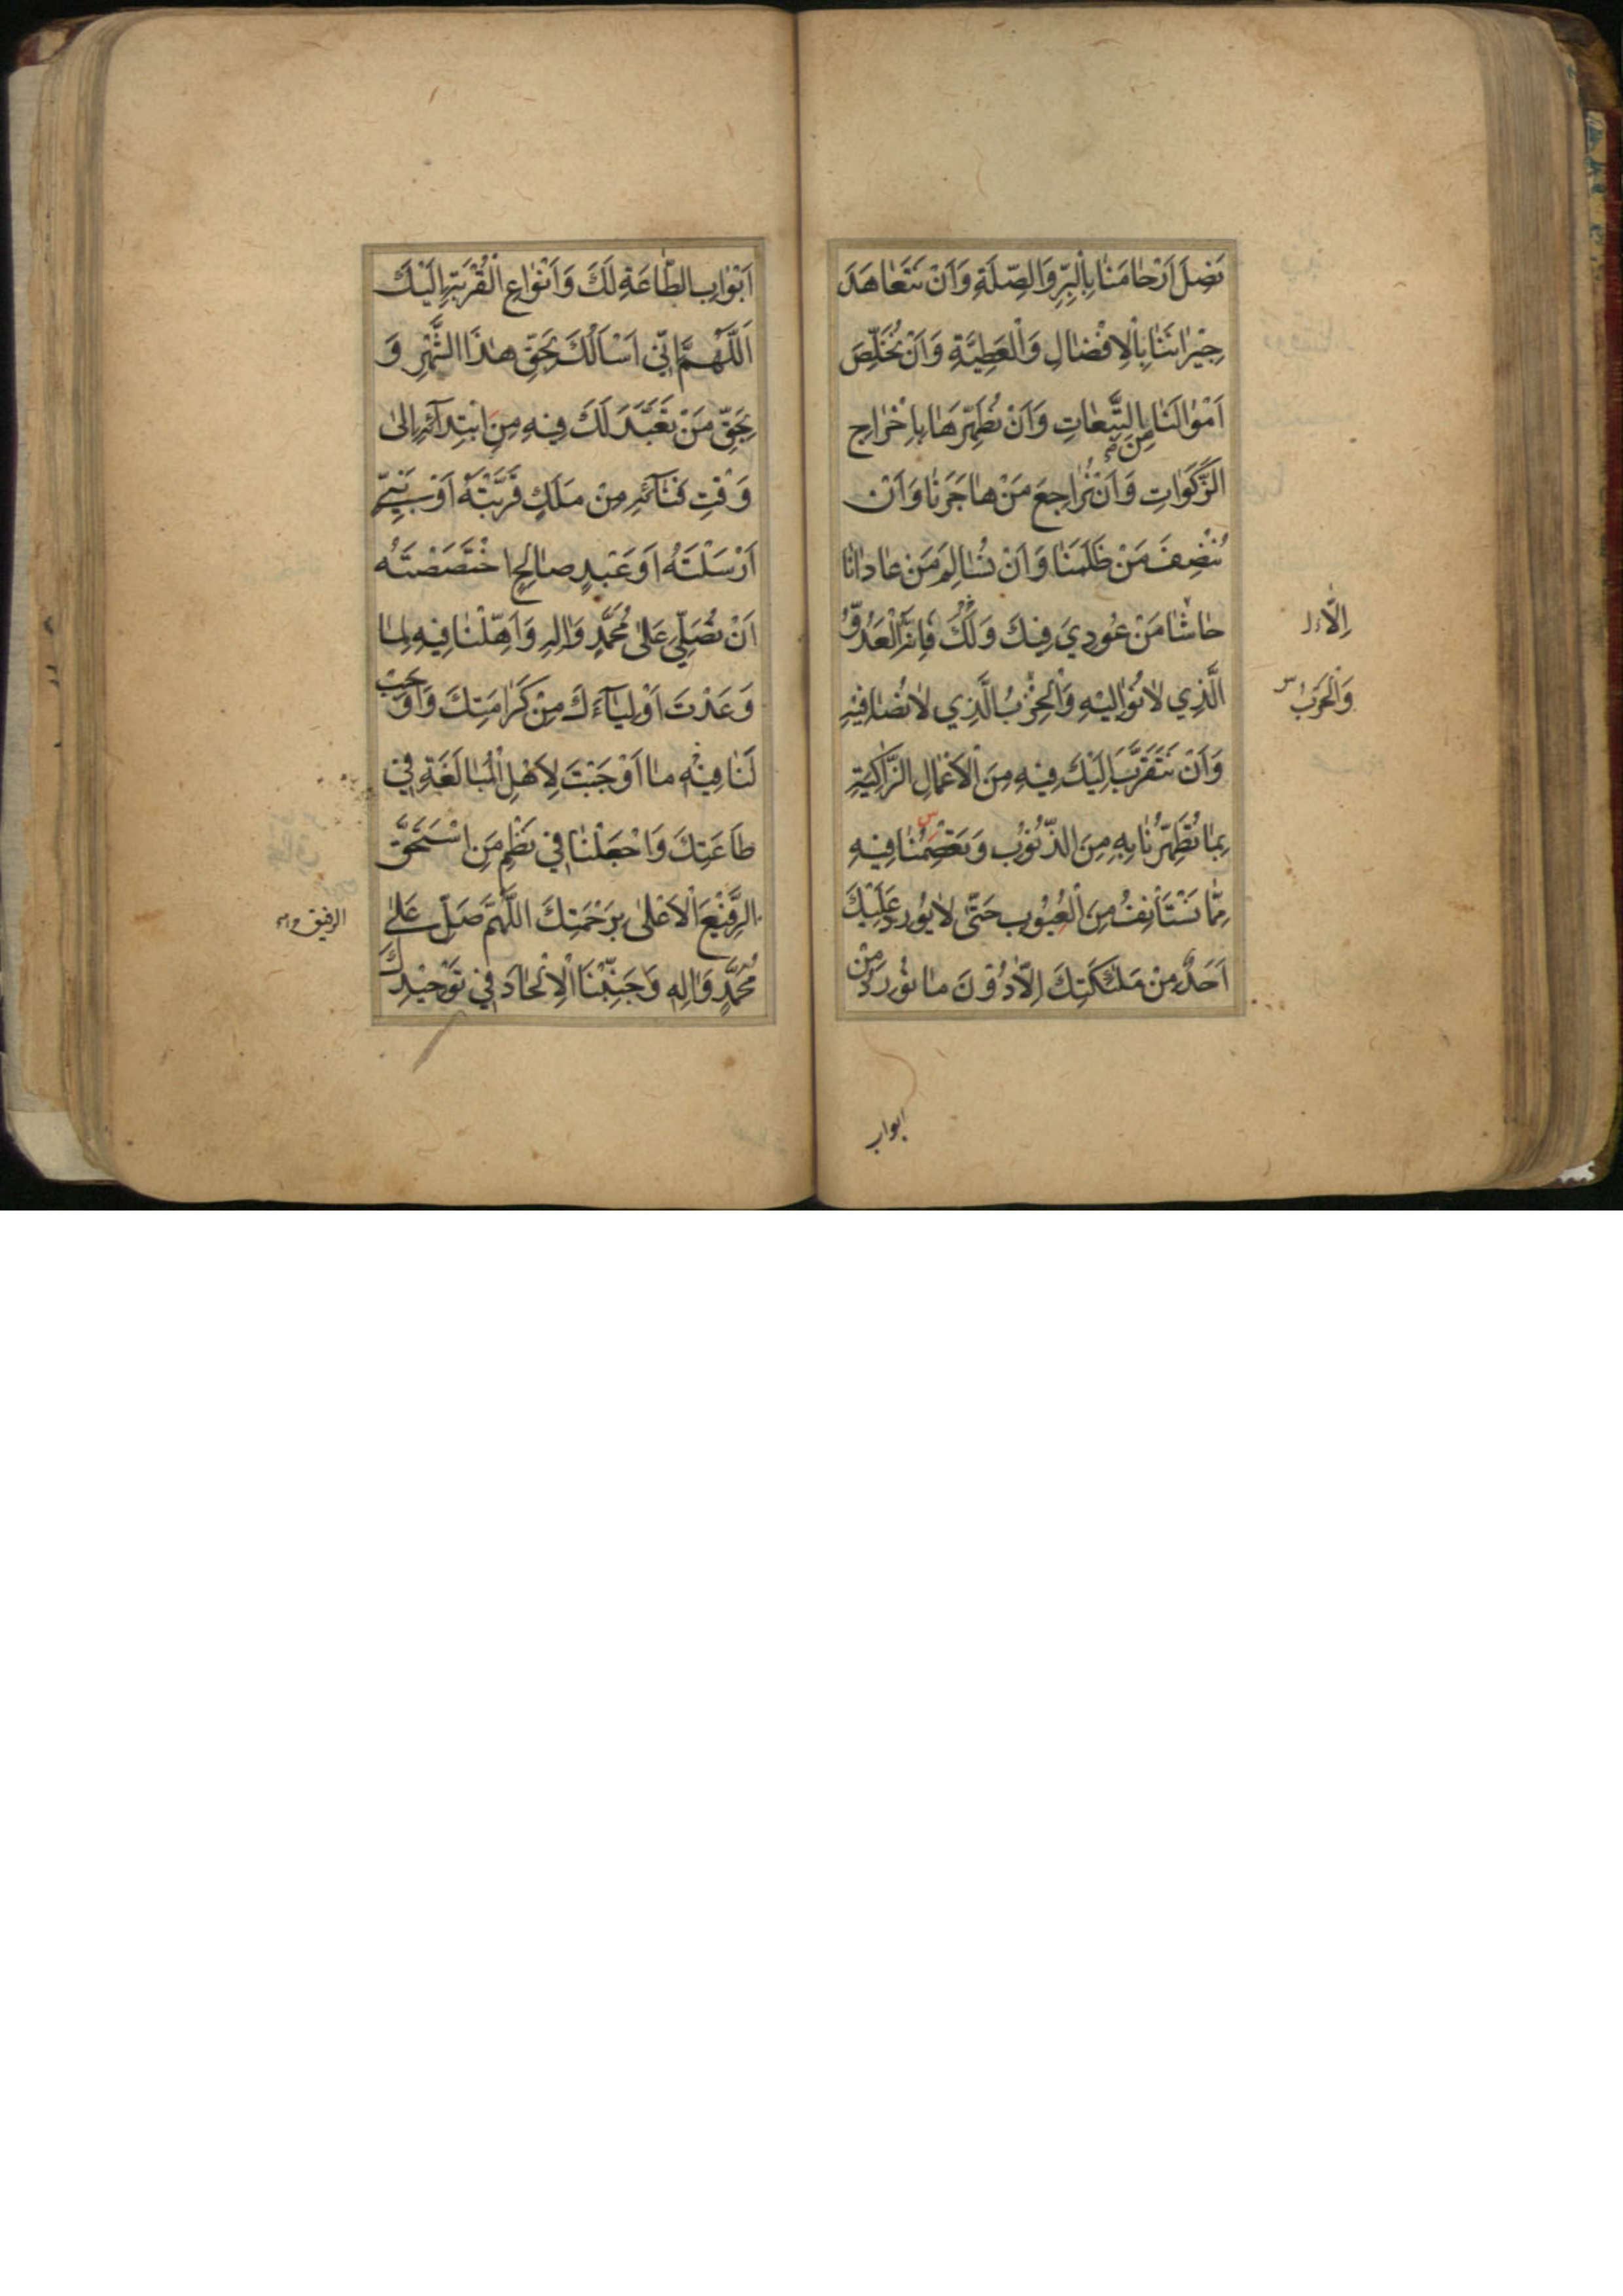 نَصِلَ اَرْحٰامَنٰا بِالْبِرِّ وَالصِّلَةِ وَاَنْ نَتَعٰاهَدَ
جِيْرٰانَنٰا بِالْاِفْضٰالِ وَالْعَطِيَّةِ وَاَنْ نُخَلِّصَ
اَمْوٰالَنٰا مِنَ التَّبِعٰاتِ وَاَنْ نُطَهِّرَهٰا بِاِخْرٰاجِ
الزَّكَوٰاتِ وَاَنْ نُرٰاجِعَ مَنْ هٰاجَرَنٰا وَاَنْ
نُنْصِفَ مَنْ ظَلَمَنٰا وَاَنْ نُسٰالِمَ مَنْ عٰادٰانٰا
حٰاشٰا مَنْ عُودِيَ فِيْكَ وَلَكَ فَاِنَّهُ الْعَدُوُّ
اِلّٰا
الَّذِي لٰا نُوٰالِيْهِ وَالْحِزْبُ الَّذِي لٰا نُصٰافِيْهِ
وَالْحَرْبُ س
وَاَنْ نَتَقَرَّبَ اِلَيْكَ فِيْهِ مِنَ الْاَعْمٰالِ الزّٰاكِيَةِ
بِمٰا تُطَهِّرُنٰا بِهِ مِنَ الذُّنُوْبِ وَتَعْصِمُنٰا فِيْهِ
مِمّٰا نَسْتَأْنِفُ مِنَ الْعُيُوْبِ حَتّٰى لٰا يُوْرِدَ عَلَيْكَ
اَحَدٌ مِنْ مَلٰئِكَتِكَ اِلّٰا دُوْنَ مٰا نُوْرِدُ مِنْ
ابواب
اَبْوٰابِ الطّٰاعَةِ لَكَ وَاَنْوٰاعِ الْقُرْبَةِ اِلَيْكَ
اَللّٰهُمَّ اِنّي اَسْاَلُكَ بِحَقِّ هٰذَا الشَّهْرِ وَ
بِحَقِّ مَنْ تَعَبَّدَ لَكَ فِيْهِ مِنِ ابْتِدٰآئِهِ اِلىٰ
وَقْتِ فَنٰآئِهِ مِنْ مَلَكٍ قَرَّبْتَهُ اَوْ نَبِيٍّ
اَرْسَلْتَهُ اَوْ عَبْدٍ صٰالِحٍ اخْتَصَصْتَهُ
اَنْ تُصَلِّيَ عَلىٰ مُحَمَّدٍ وَاٰلِهِ وَاَهِّلْنٰا فِيْهِ لِمٰا
وَعَدْتَ اَوْلِيٰآءَكَ مِنْ كَرٰامَتِكَ وَاَوْجِبْ
لَنٰا فِيْهِ مٰا اَوْجَبْتَ لِاَهْلِ الْمُبٰالَغَةِ في
طٰاعَتِكَ وَاجْعَلْنٰا في نَظْمِ مَنِ اسْتَحَقَّ
الرَّفِيْعَ الْاَعْلىٰ بِرَحْمَتِكَ اللّٰهُمَّ صَلِّ عَلىٰ
الرفيق
مُحَمَّدٍ وَاٰلِهِ وَجَنِّبْنَا الْاِلْحٰادَ في تَوْحِيْدِكَ